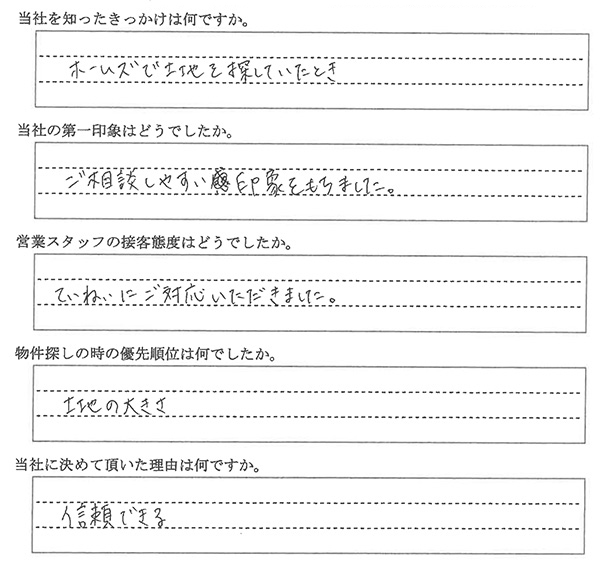 当社を知ったきっかけは何ですか。
ホームズで土地を探していたとき
当社の第一印象はどうでしたか。
ご相談しやすい印象をもちました。
営業スタッフの接客態度はどうでしたか。
ていねいにご対応いただきました。
物件探しの時の優先順位は何でしたか。
土地の大きさ
当社に決めて頂いた理由は何ですか。
信頼できる